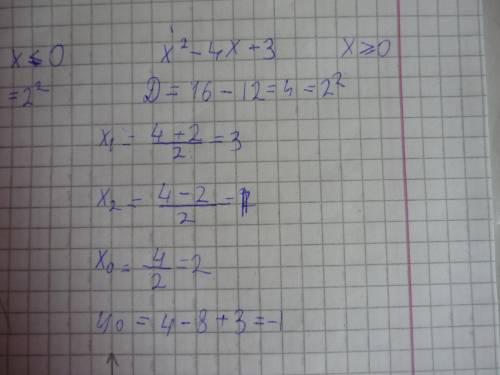 x ≤ 0 x² - 4x + 3 x ≥ 0
= 2² D = 16 - 12 = 4 = 2²
x₁ = (4 + 2)/2 = 3
x₂ = (4 - 2)/2 = 1
x₀ = 4/2 = 2
y₀ = 4 - 8 + 3 = -1